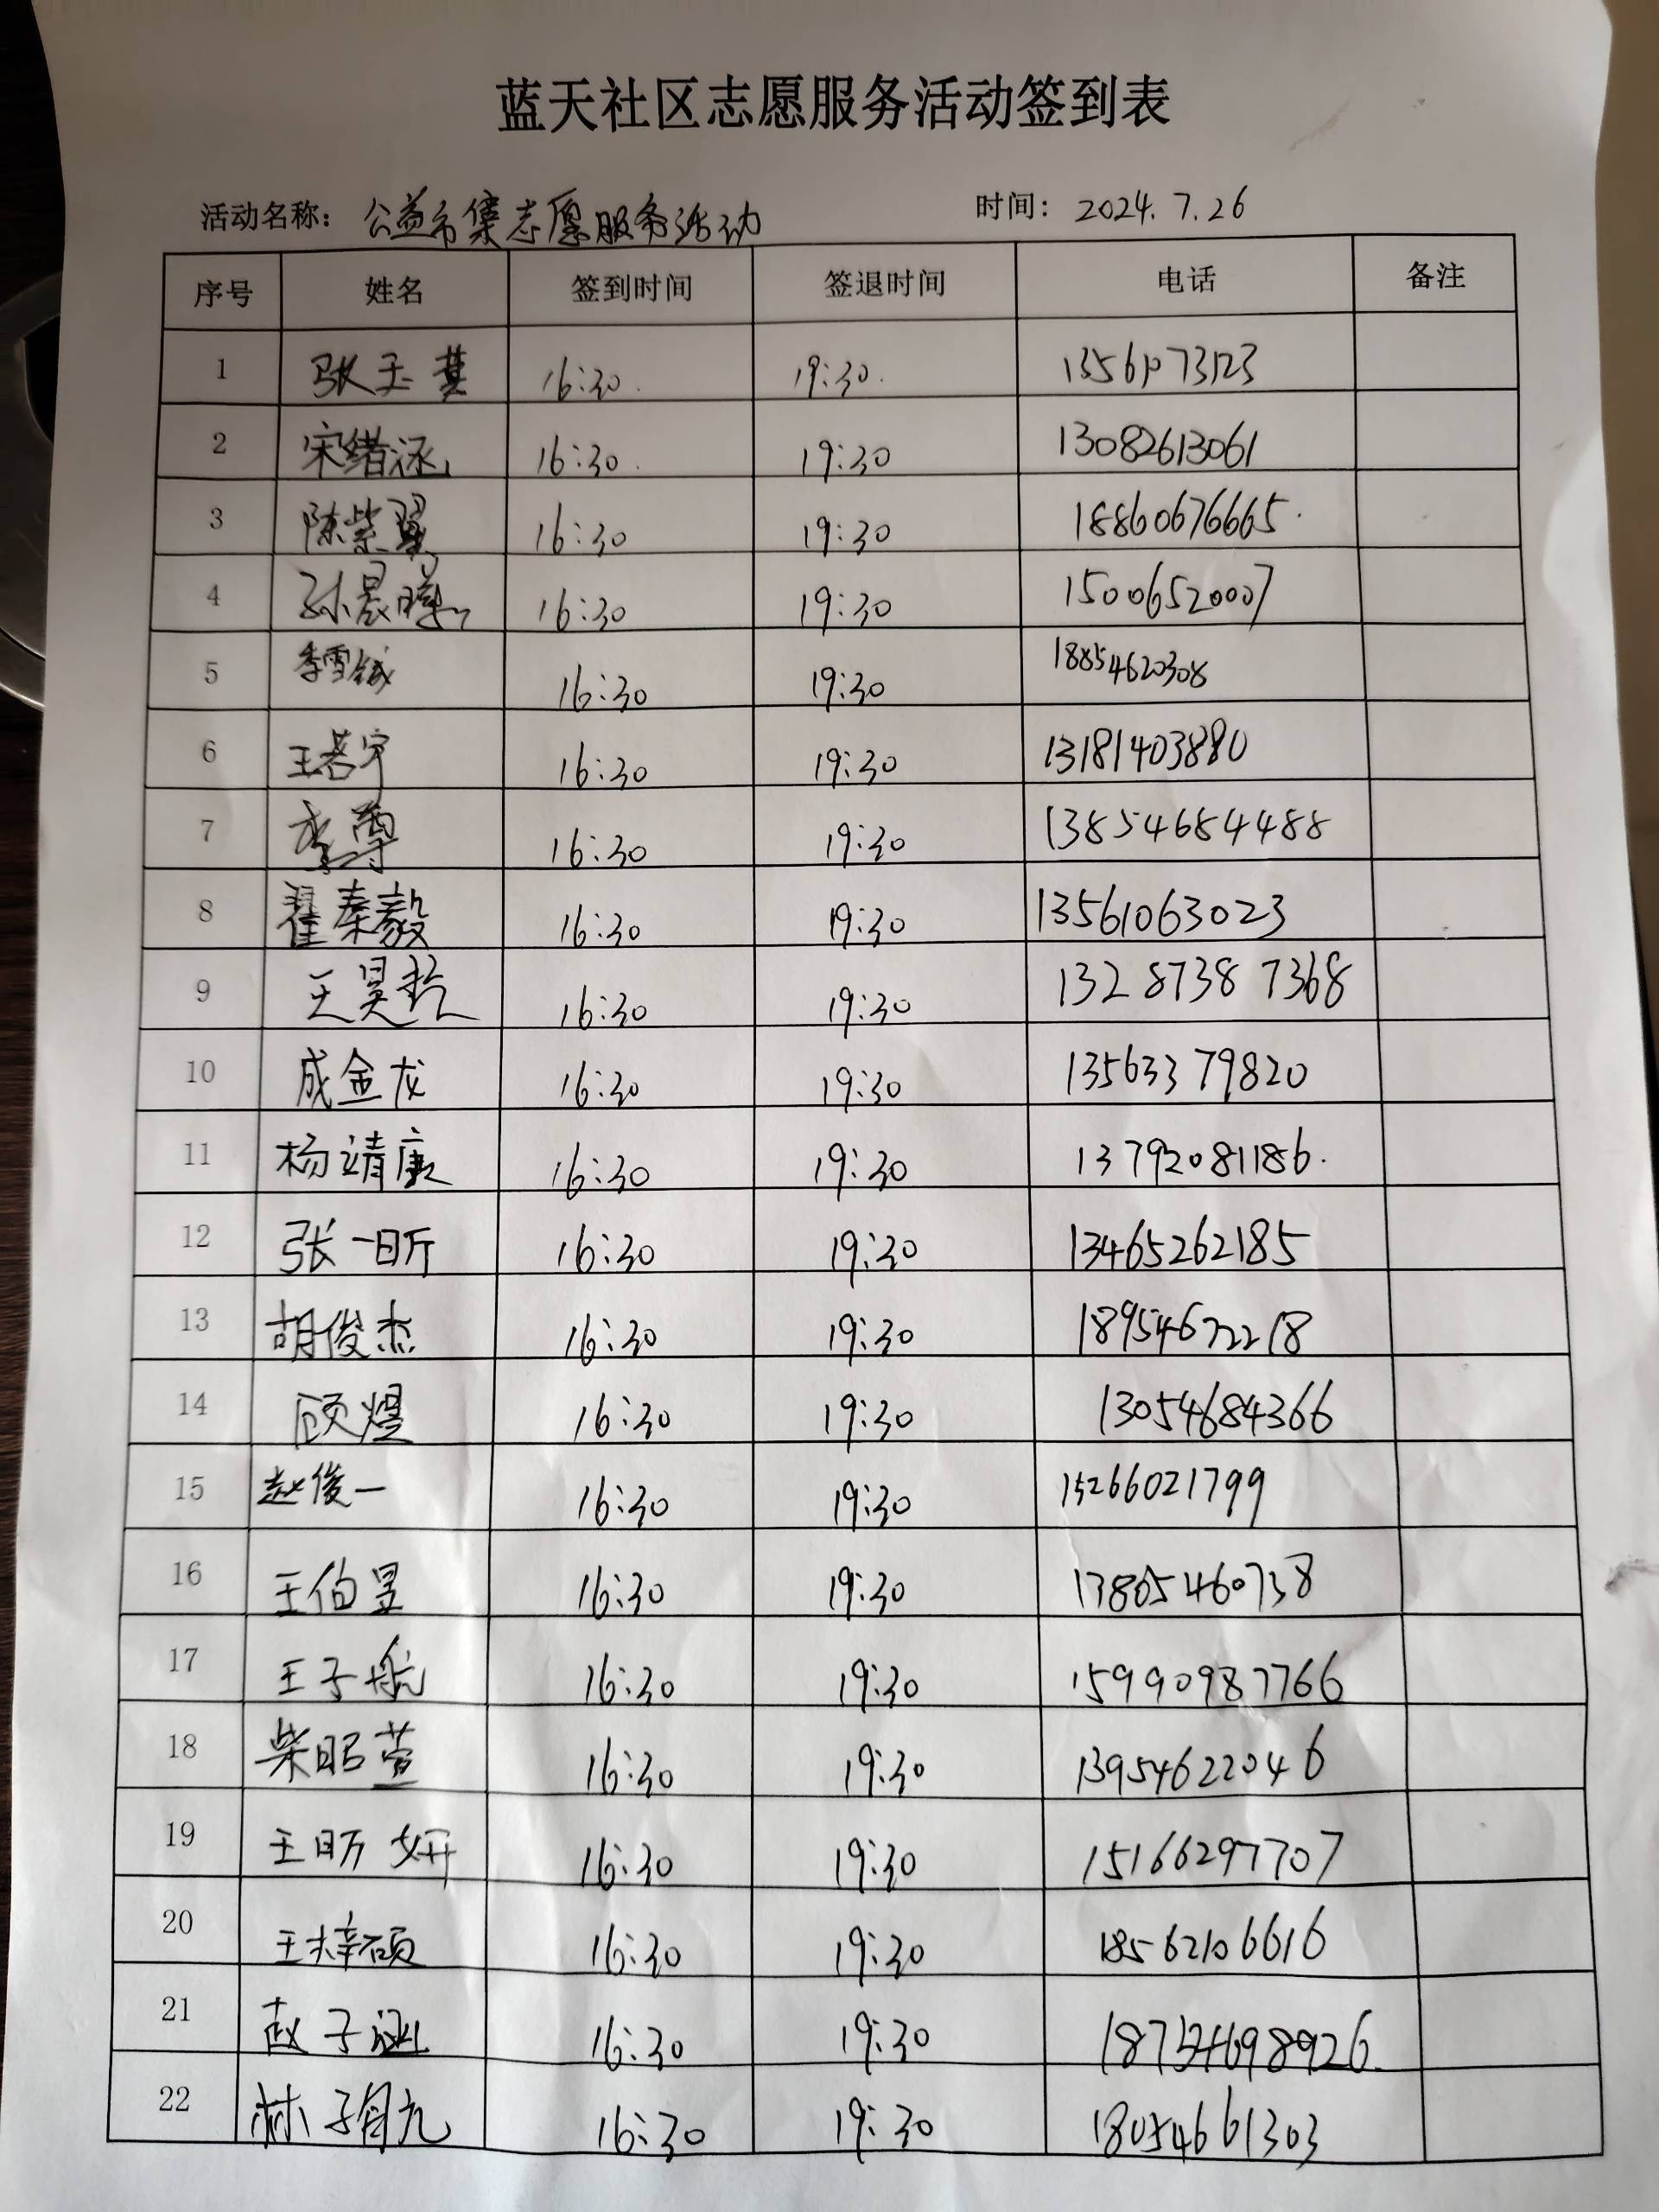 蓝天社区志愿服务活动签到表
活动名称: 公益市集志愿服务活动 时间: 2024.7.26
序号 姓名 签到时间 签退时间 电话 备注
1 张玉 16:30 19:30
2 宋绪涵 16:30 19:30 13082613061
3 陈紫翼 16:30 19:30 18860676665
4 孙晨 16:30 19:30 15006520007
5 季雪铖 16:30 19:30 18854620308
6 王若宇 16:30 19:30 13181403880
7 李尊 16:30 19:30 13854684488
8 翟秦毅 16:30 19:30 13561063023
9 王昊 16:30 19:30 13287387368
10 成金龙 16:30 19:30 13563379820
11 杨靖康 16:30 19:30 13792081186
12 张一昕 16:30 19:30 13465262185
13 胡俊杰 16:30 19:30 18954672218
14 顾煜 16:30 19:30 13054684366
15 赵俊一 16:30 19:30 15266021799
16 王伯昱 16:30 19:30 13805460738
17 王子航 16:30 19:30 15990987766
18 柴昭萱 16:30 19:30 13954622046
19 王昉妍 16:30 19:30 15166297707
20 王梓硕 16:30 19:30 18562106616
21 赵子涵 16:30 19:30
22 林子 16:30 19:30 18054661303